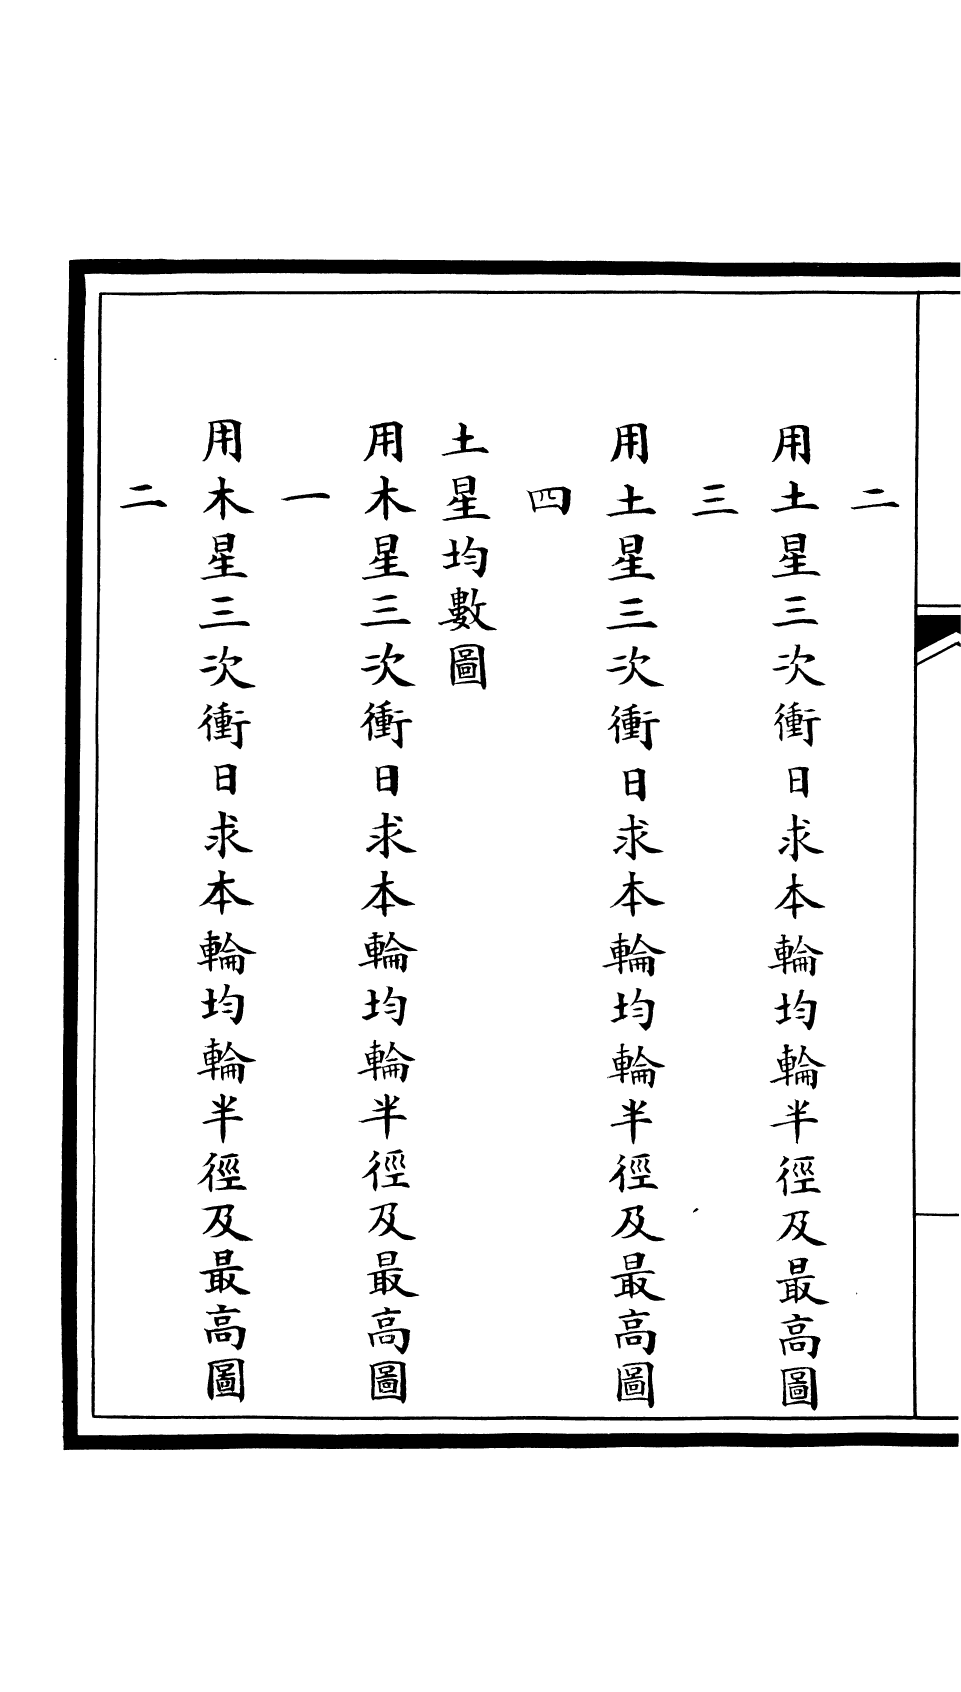 二
用土星三次衝日求本輪均輪半徑及最高圖
三
用土星三次衝日求本輪均輪半徑及最高圖
四
土星均數圖
用木星三次衝日求本輪均輪半徑及最高圖
一
用木星三次衝日求本輪均輪半徑及最高圖
二